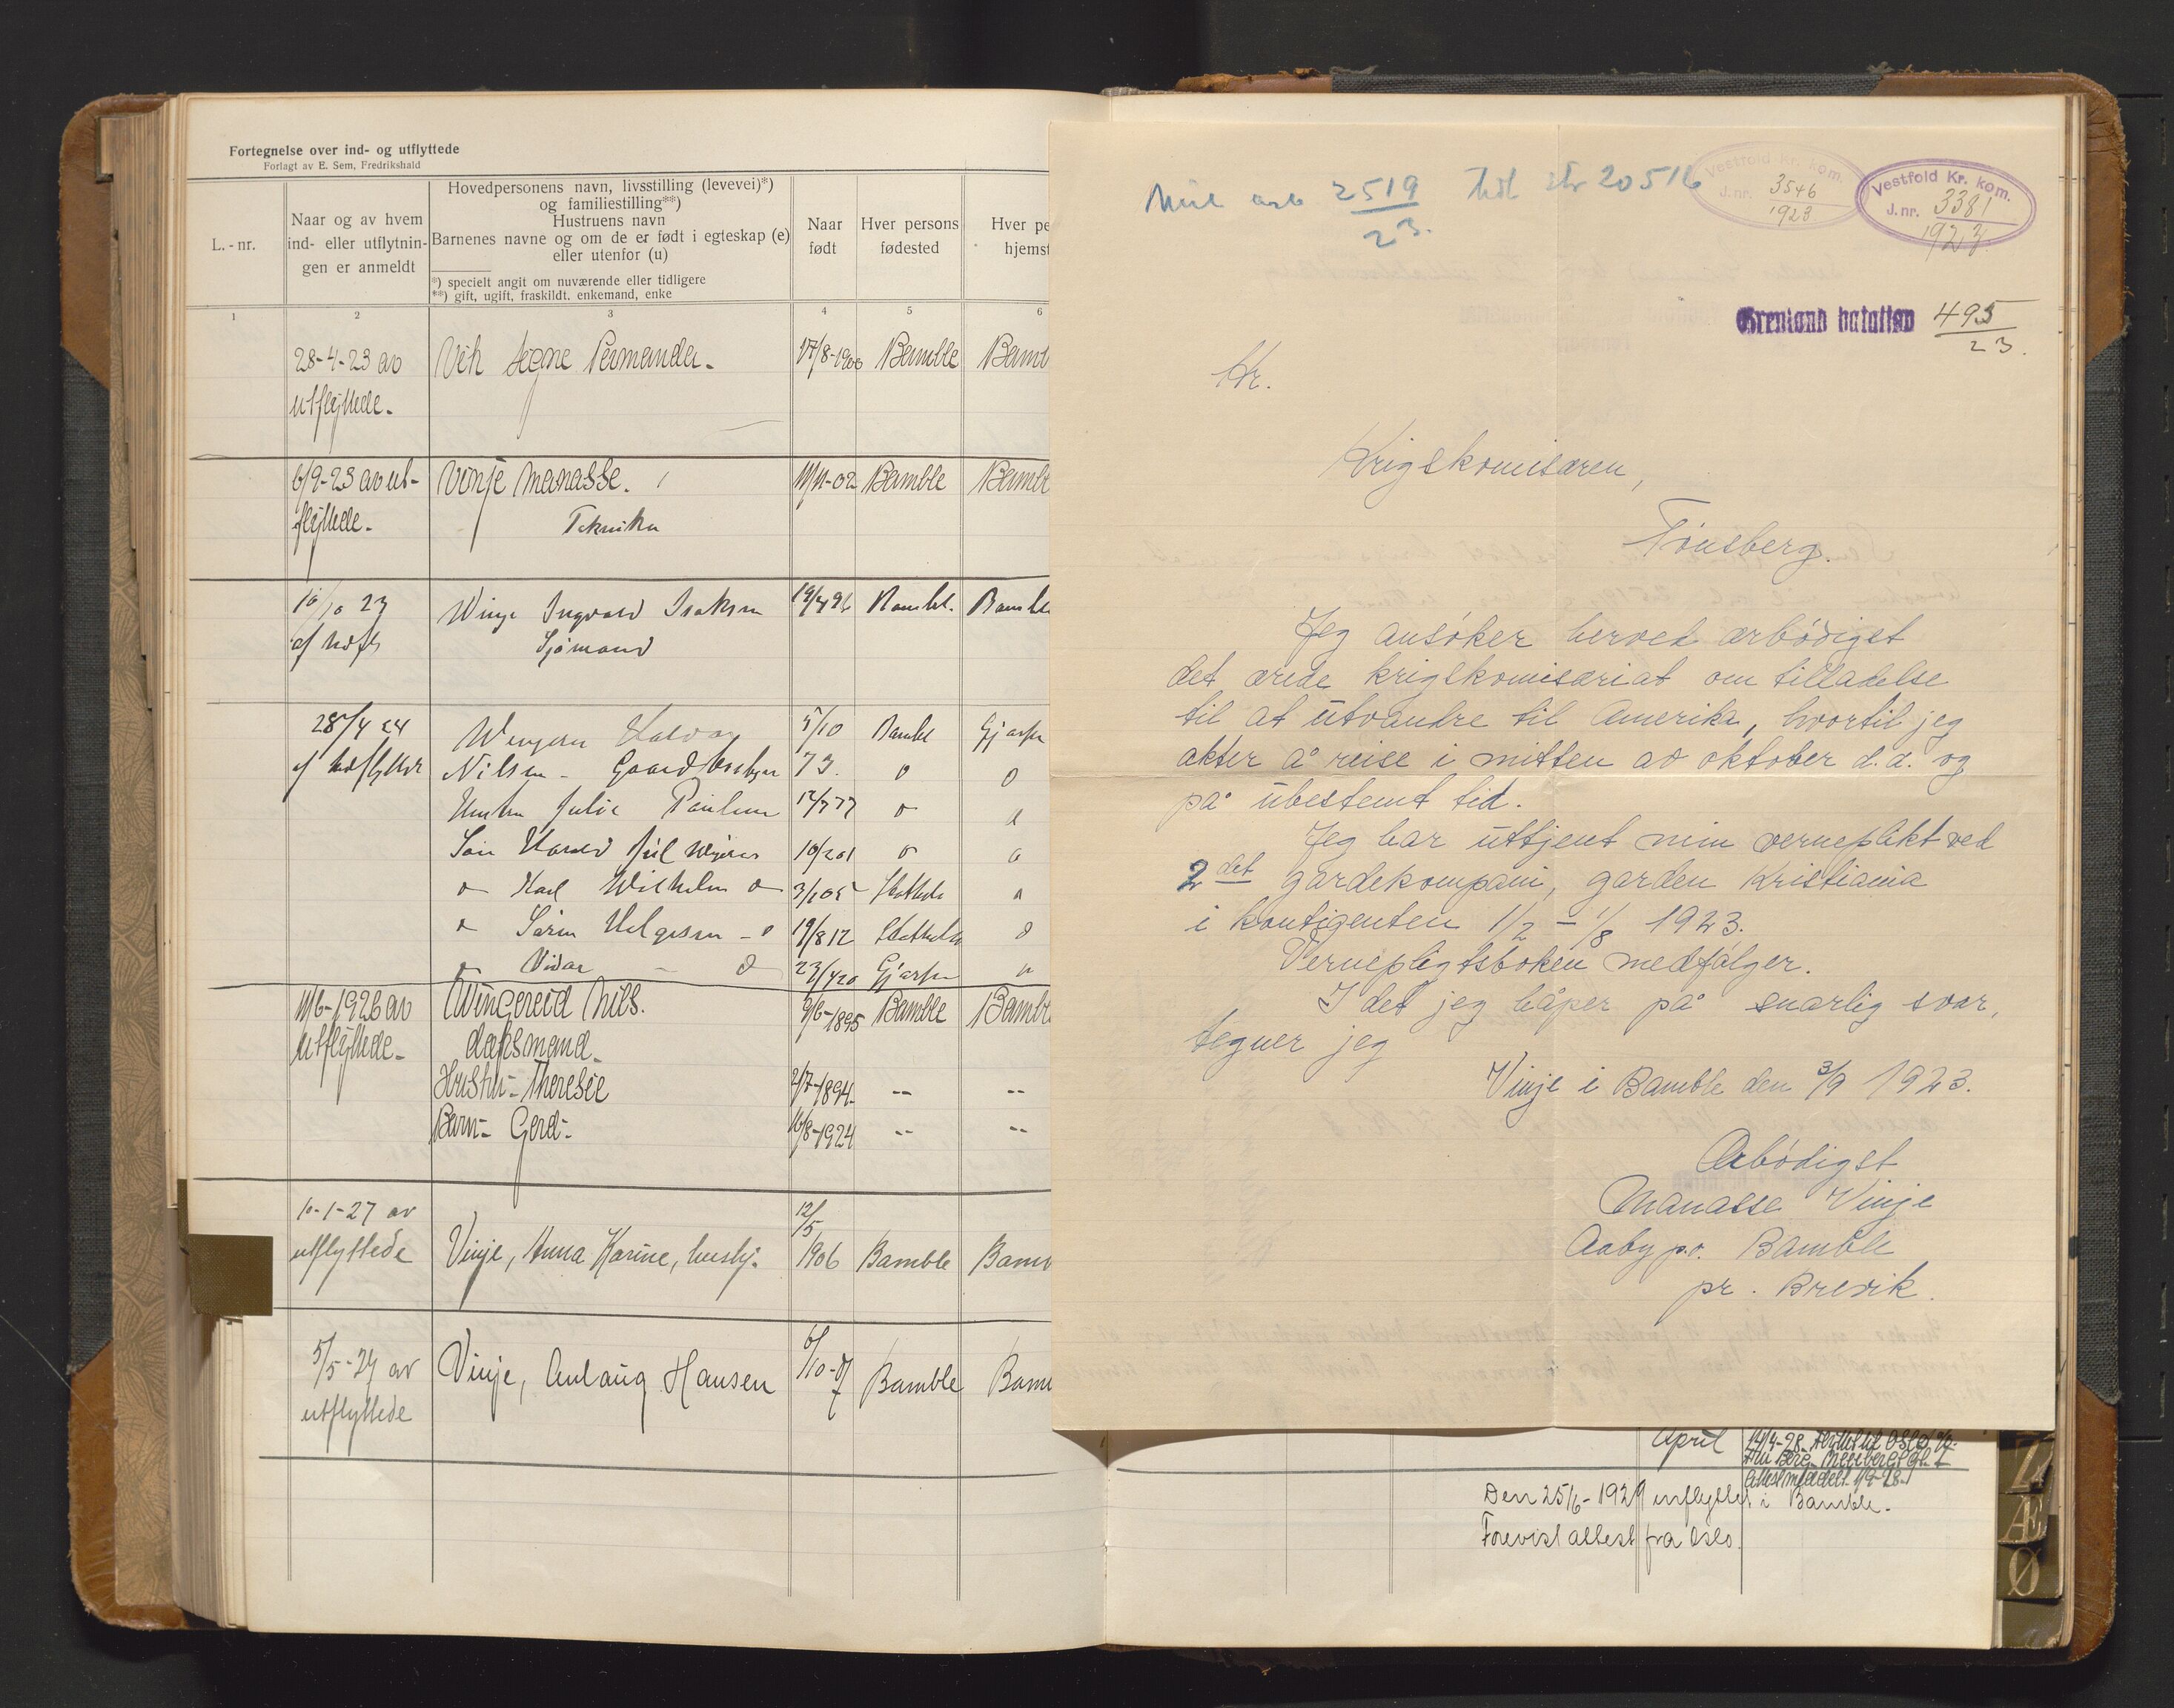 Fortegnelse over ind- og utflyttede
Forlagt av E. Sem, Fredrikshald
L.-nr.
Naar og av hvem
ind- eller utflytnin-
gen er anmeldt
Hovedpersonens navn, livsstilling (levevei)*)
og familiestilling**)
Hustruens navn
Barnenes navne og om de er født i egteskap (e)
eller utenfor (u)
*) specielt angit om nuværende eller tidligere
**) gift, ugift, fraskildt. enkemand, enke
Naar
født
Hver persons
fødested
Hver pe
hjemst
1 2 3 4 5 6
28-4-23 av Bamble Bamb
utflyttede.
6/9-23 av ut- Vinje Manasse. 11/11-02 Bamble Bamble
flyttede. Tekniker
10/10 23 Winje Ingvald Isaksen Bambl. Bamble
Sjømand
28/4 24 Halvor 5/10 Bambl Gjerpen
af utflytter Nilsen - 73.
Hustru Julie Paulsen 12/7 77
Søn Harald
Karl Wilhelm 3/1 05
Søren Helgesen 19/8 12
Vidar 23/4 20 Gjerpen
11/6-1926 av Wingereid Nils. 9/6-1895 Bamble Bamble
utflyttede-
Hustru- Theresie 2/7-1894. -- --
Barn- Gerd- 16/8-1924 -- --
10-1-27 av 12/5
utflyttede Vinje, Anna Karine, hushj. 1906 Bamble Bamb
5/5-27 av Vinje, Aulaug Hansen 6/10-07 Bamble Bam
utflyttede
Mil 2519/23. 20516
Vestfold Kr. kom.
J.nr. 3546
1923
Vestfold Kr. kom.
J.nr. 3381
1923
Grenland bataljon 495/23.
Hr.
Krigskomisæren,
Tønsberg.
Jeg ansøker herved ærbødigst
det ærede krigskomisæriat om tilladelse
til at utvandre til Amerika, hvortil jeg
akter å reise i mitten av oktober d.å. og
på ubestemt tid.
Jeg har uttjent min verneplikt ved
2det gardekompani, garden Kristiania
i kontigenten 1/2 - 1/8 1923.
Vernepligtsboken medfølger.
I det jeg håper på snarlig svar,
tegner jeg
Vinje i Bamble den 3/9 1923.
Ærbødigst
Manasse Vinje
Aaby p.o. Bamble
pr. Brevik.
April 14/4-28 Flyttet til Oslo
Den 25/6-1929 innflyttet i Bamble.
Forevist attest fra Oslo.
Z
Æ
Ø